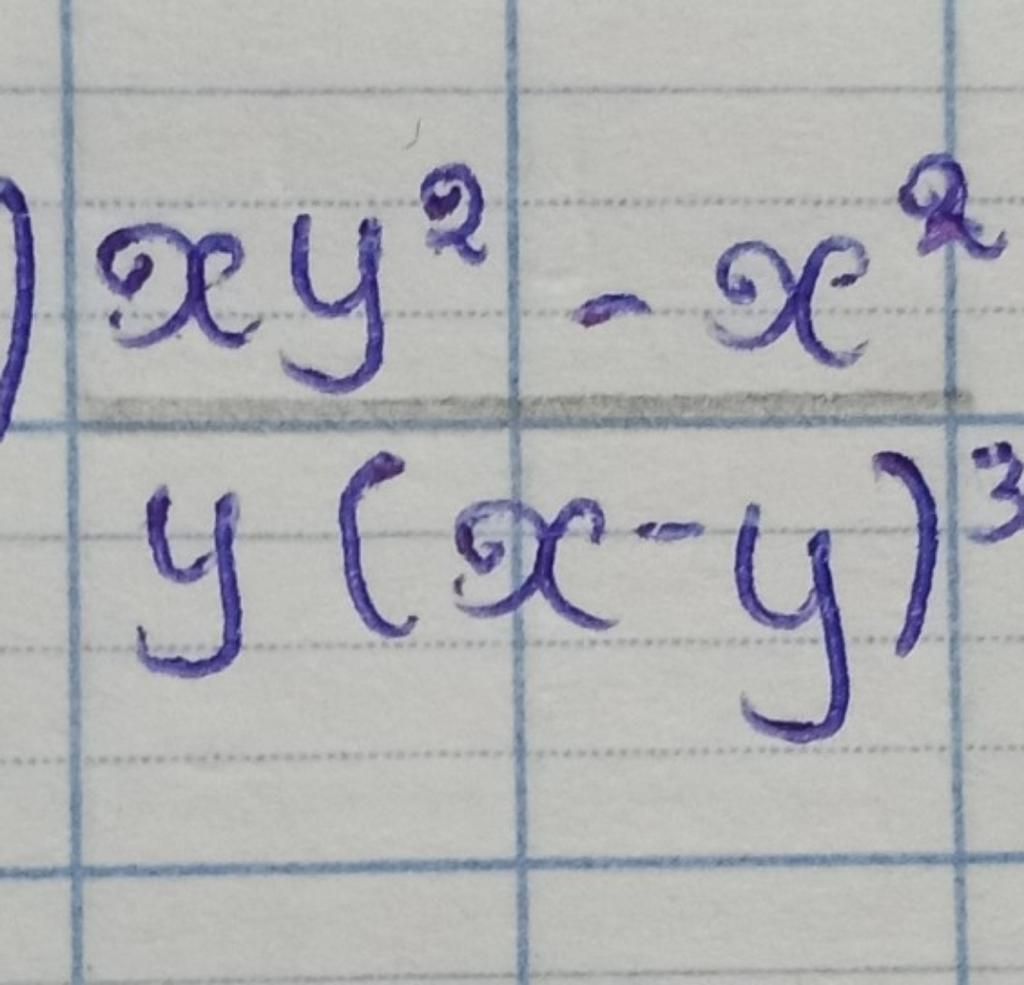 ) xy² - x²
y (x - y)³